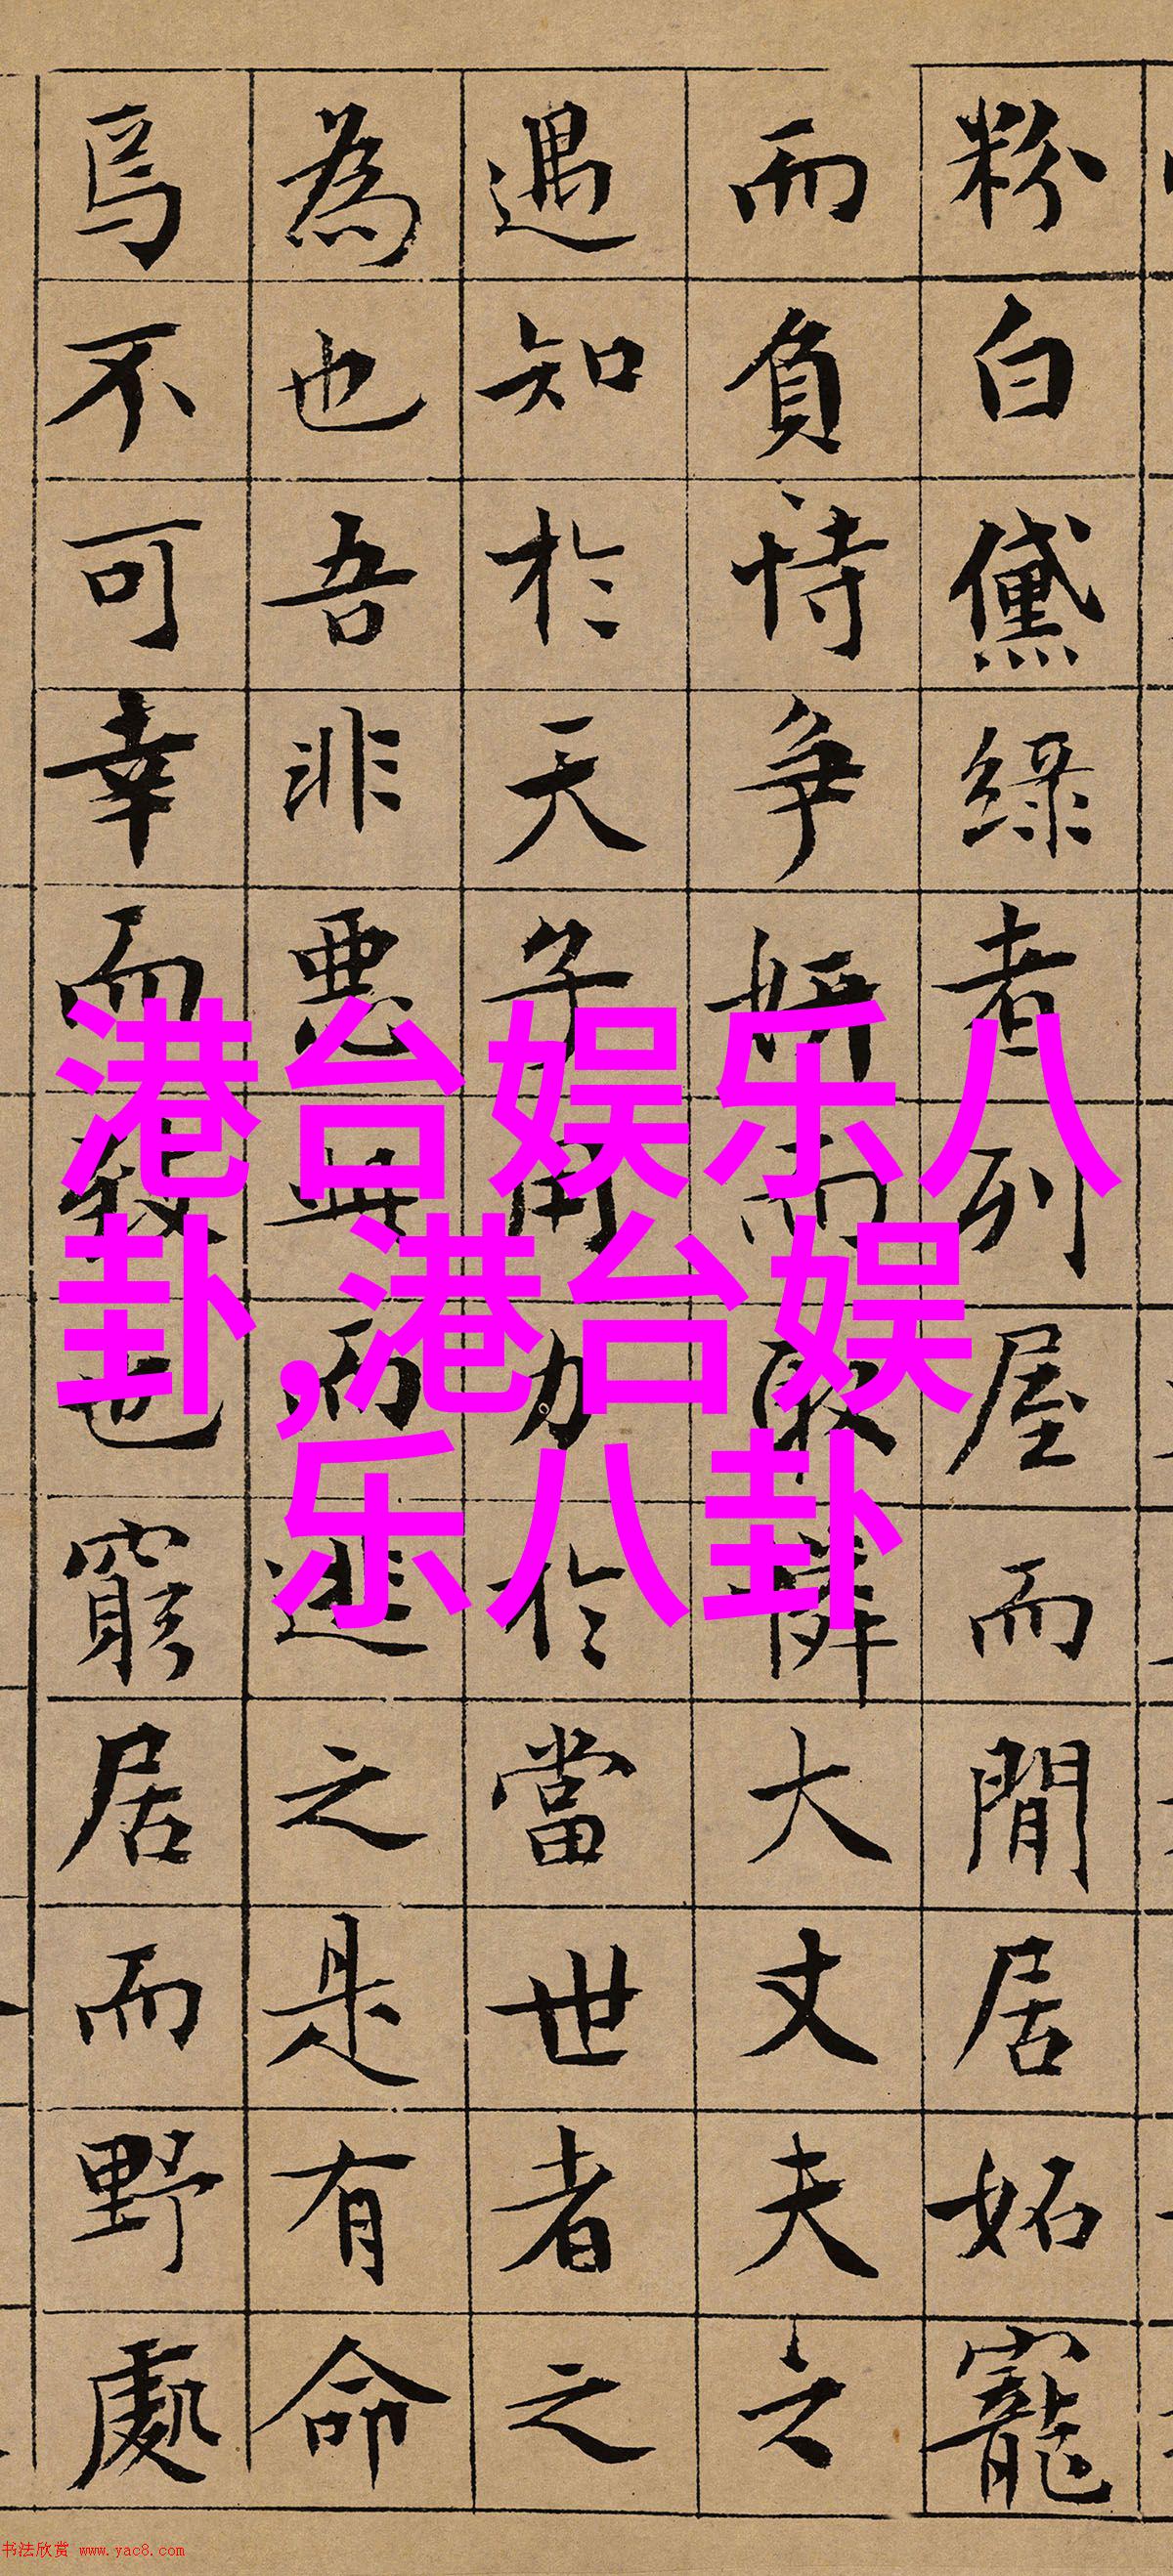 粉白黛綠者列屋而閒居妬寵
而負恃争妍而取憐大丈夫之
遇知於天子用力於當世者之
為也吾非惡此而逃之是有命
焉不可幸而致也窮居而野處
港台娱乐八
卦,港台娱
乐八卦
书法欣赏 www.yac8.com